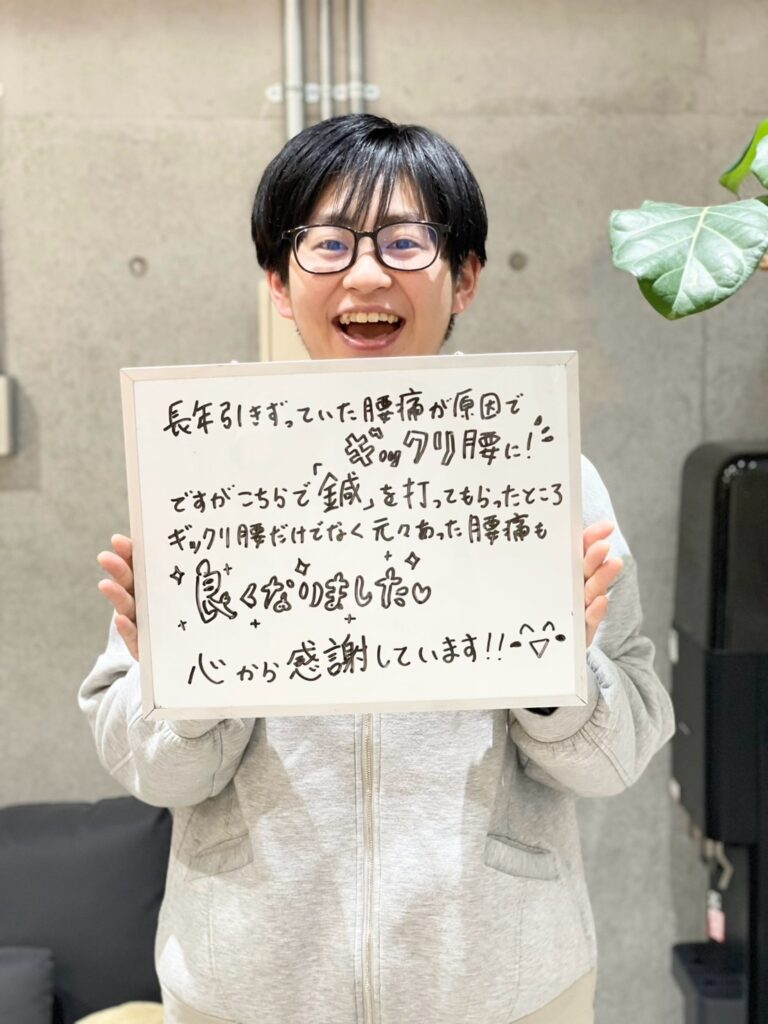 長年引きずっていた腰痛が原因で
ギックリ腰に!
ですがこちらで「鍼」を打ってもらったところ
ギックリ腰だけでなく元々あった腰痛も
良くなりました♡
心から感謝しています!!